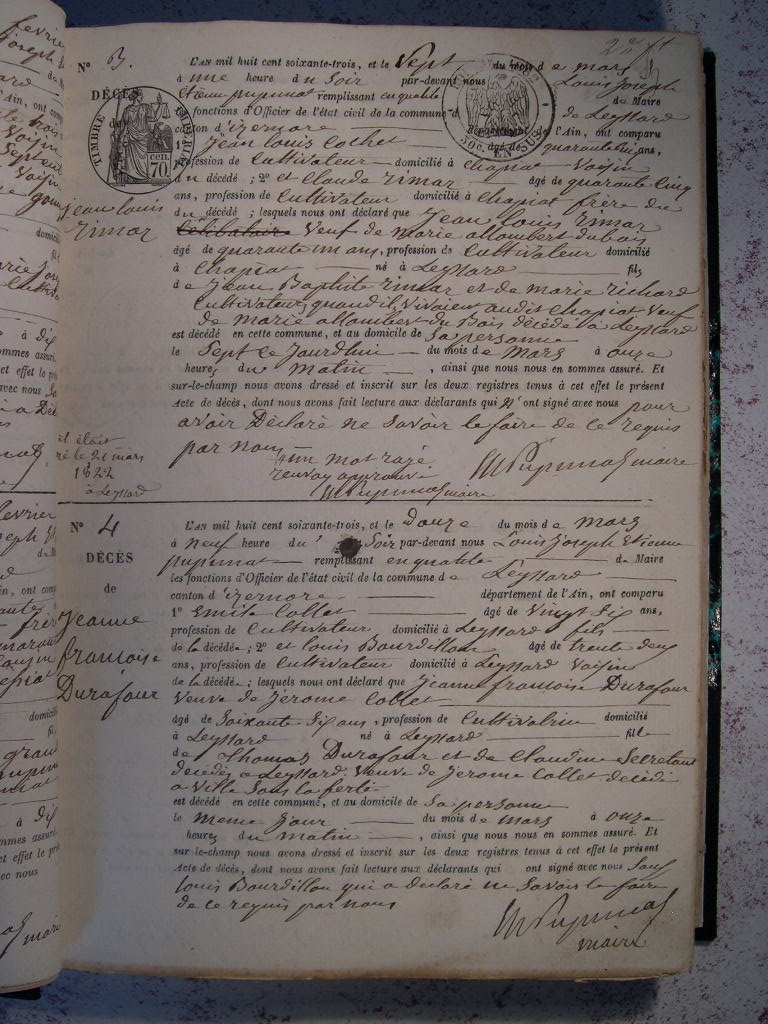 2e ft
N° 3.
DÉCÈS
de
TIMBRE IMPERIAL
70 cen.
50c.
EN SUS
jean louis
rimaz
L'AN mil huit cent soixante-trois, et le Sept du mois de mars
à une heure du Soir par-devant nous Louis Joseph
Etienne pupunat remplissant en qualité de Maire
les fonctions d'Officier de l'état civil de la commune d de Leyssard
canton d'izernore département de l'Ain, ont comparu
1° Jean louis Cochet âgé de quarante ans,
profession de Cultivateur domicilié à Chapiat Voisin
du décédé ; 2° et Claude rimaz âgé de quarante Cinq
ans, profession de Cultivateur domicilié à Chapiat frère du
du décédé ; lesquels nous ont déclaré que Jean louis rimaz
Célibataire Veuf de marie allombert dubois
âgé de quarante un ans, profession de Cultivateur domicilié
à Chapiat né à Leyssard fils
de Jean Baptiste rimaz et de marie richard
Cultivateurs quand il Vivoient audit Chapiat Veuf
de marie allombert du Bois décédé à Leyssard
est décédé en cette commune, et au domicile de Sa personne
le Sept Ce Jourdhui du mois de Mars à onze
heures du Matin , ainsi que nous nous en sommes assuré. Et
sur-le-champ nous avons dressé et inscrit sur les deux registres tenus à cet effet le présent
Acte de décès, dont nous avons fait lecture aux déclarants qui n' ont signé avec nous pour
avoir Déclaré ne Savoir le faire de ce requis
par nous
un mot rayé
renvoy approuvé
Pupunat maire
Pupunat maire
il était
né le 21 mars
1822
à Leyssard
N° 4
DÉCÈS
de
Jeanne
francoise
Durafour
L'AN mil huit cent soixante-trois, et le Douze du mois de Mars
à neuf heure du Soir par-devant nous Louis Joseph Etienne
pupunat remplissant en qualité de Maire
les fonctions d'Officier de l'état civil de la commune de Leyssard
canton d'izernore département de l'Ain, ont comparu
1° Emile Collet âgé de Vingt Six ans,
profession de Cultivateur domicilié à Leyssard fils
de la décédée ; 2° et louis Bourdillon âgé de trente deux
ans, profession de Cultivateur domicilié à Leyssard Voisin
de la décédée ; lesquels nous ont déclaré que Jeanne francoise Durafour
Veuve de Jerome Collet
âgé de Soixante Six ans, profession de Cultivatrice domicilié
à Leyssard né à Leyssard fille
de Thomas Durafour et de Claudine Secretant
décédés a Leyssard. Veuve de Jerome Collet décédé
a Ville Sous la ferté
est décédé en cette commune, et au domicile de Sa personne
le meme Jour du mois de mars à onze
heures du matin , ainsi que nous nous en sommes assuré. Et
sur le-champ nous avons dressé et inscrit sur les deux registres tenus à cet effet le présent
Acte de décès, dont nous avons fait lecture aux déclarants qui ont signé avec nous Sauf
Louis Bourdillon qui a declaré ne Savoir le faire
de ce requis par nous
Pupunat
maire